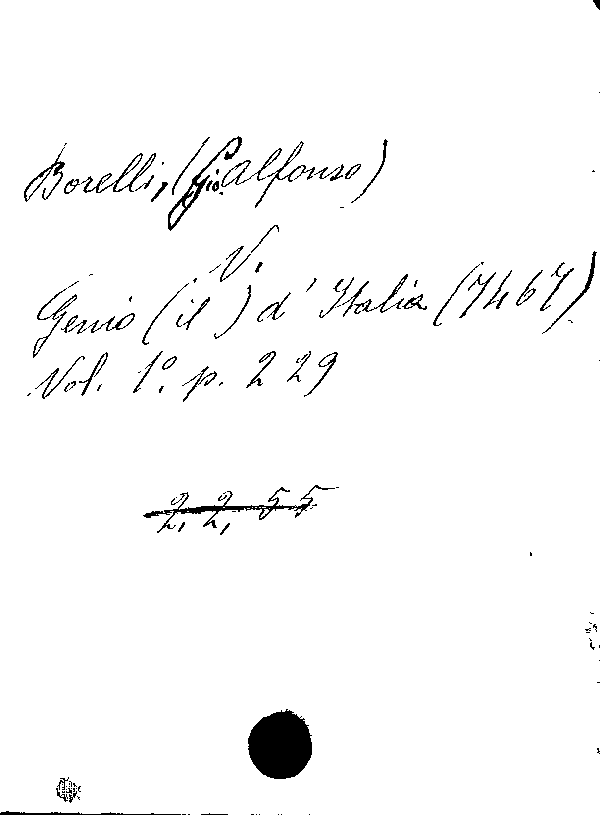 Borelli, (Gio. Alfonso)
V.
Genio (il) d' Italia (7467)
Vol. 1º. p. 229
2, 2, 55